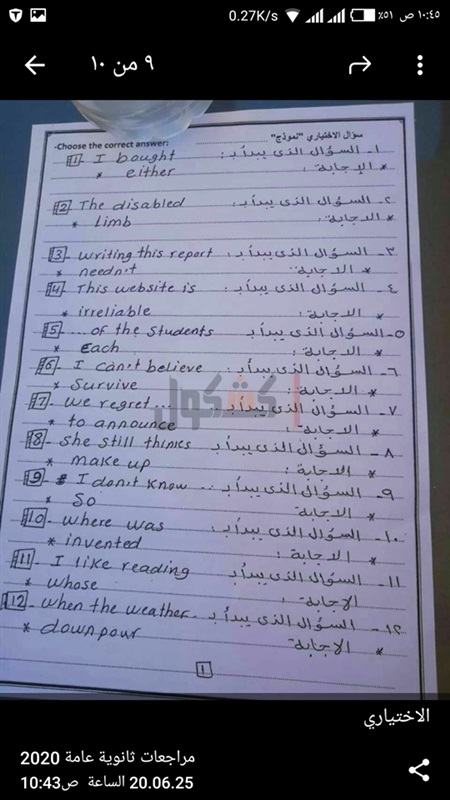 0.27K/s ٥١٪ ص ١٠:٤٥
٩ من ١٠
-Choose the correct answer: سؤال الاختياري "نموذج"
1- I bought ١- السؤال الذى يبدأ بـ :
* either * الإجابة :
2- The disabled ٢- السؤال الذى يبدأ بـ :
* limb * الاجابة :
3- writing this report ٣- السؤال الذى يبدأ بـ :
* needn't * الاجابة :
4- This website is ٤- السؤال الذى يبدأ بـ :
* irreliable * الاجابة :
5- .... of the students ٥- السؤال الذى يبدأ بـ
* Each * الاجابة :
6- I can't believe ٦- السؤال الذى يبدأ بـ :
* Survive * الاجابة :
كشكول
7- we regret... ٧- السؤال الذى يبدأ بـ ...
* to announce * الاجابة :
8- she still thinks ٨- السؤال الذى يبدأ بـ :
* make up * الاجابة :
9- I don't know ... ٩- السؤال الذى يبدأ بـ
* So * الاجابة
10- where was ١٠- السؤال الذى يبدأ بـ :
* invented * الاجابة :
11- I like reading ١١- السؤال الذى يبدأ بـ
* whose الإجابة :
12- when the weather.. ١٢- السؤال الذى يبدأ بـ
* downpour * الاجابة :
1
الاختياري
مراجعات ثانوية عامة 2020
20.06.25 الساعة 10:43ص